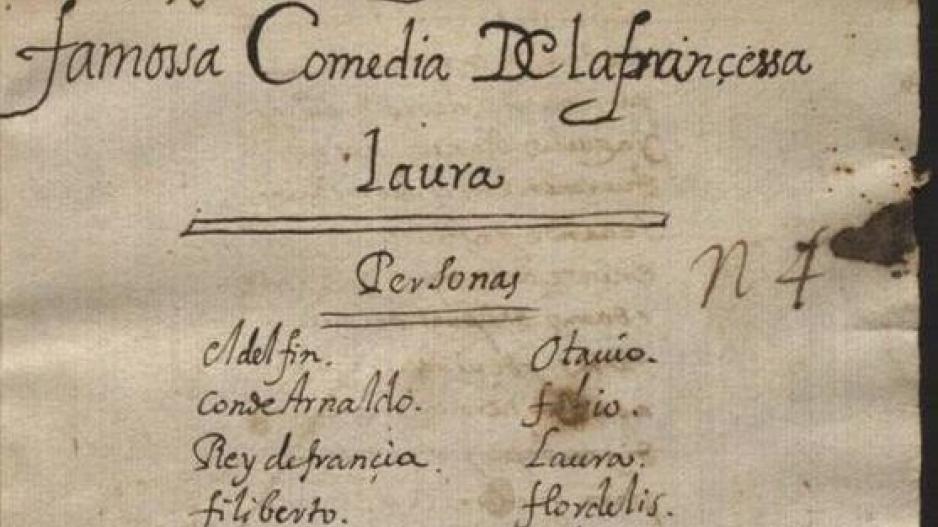 famossa Comedia De la françessa
Laura
Personas
N 4
el delfin. Otauio.
conde Arnaldo. fabio.
Rey de françia. Laura.
filiberto. flordelis.